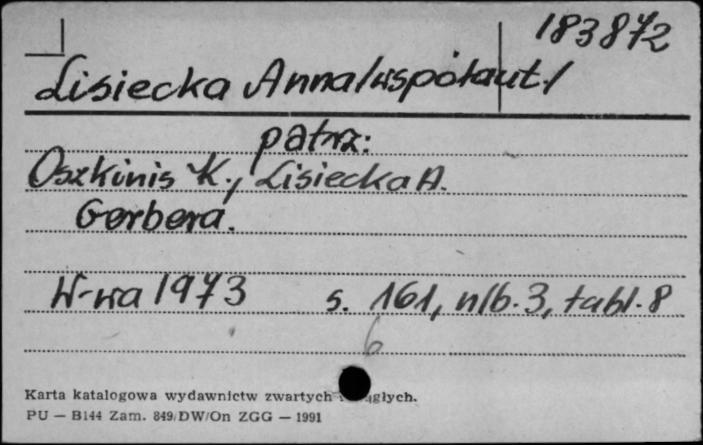 183872
Lisiecka Anna/współaut./
patrz:
Oszkinis K., Lisiecka A.
Gerbera.
W-wa 1973 s. 161, nlb. 3, tabl. 8
6
Karta katalogowa wydawnictw zwartych
PU — B144 Zam. 849/DW/On ZGG — 1991